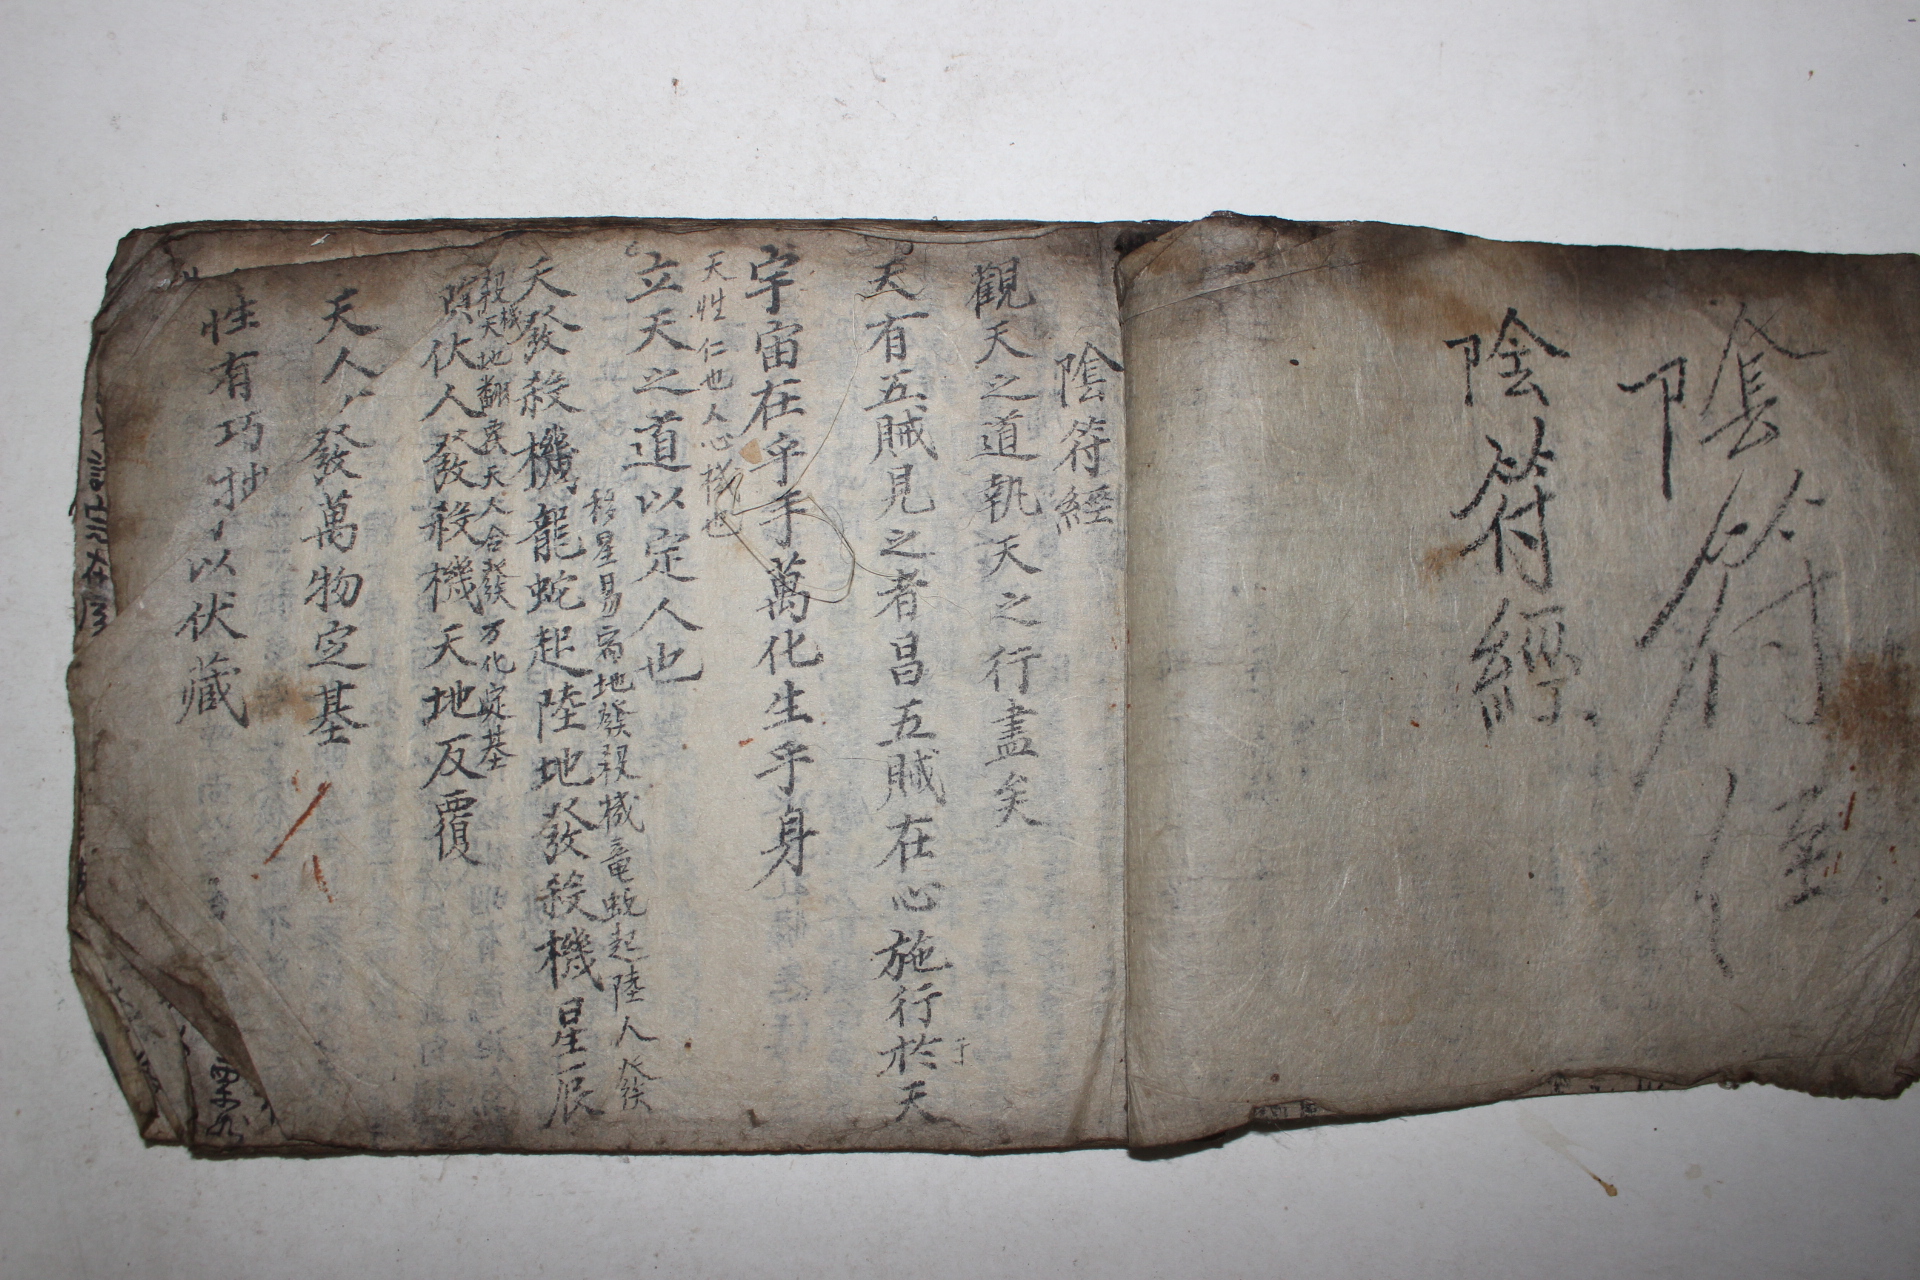 陰符經
陰符經
陰符經
觀天之道執天之行盡矣
天有五賊見之者昌五賊在心施行於天
于
宇宙在乎手萬化生乎身
天性仁也人心機也
立天之道以定人也
移星易宿地發殺機竜蛇起陸人發
天發殺機龍蛇起陸地發殺機星辰
殺機天地翻覆天人合發万化定基
隕伏人發殺機天地反覆
天人發萬物定基
性有巧抄以伏藏